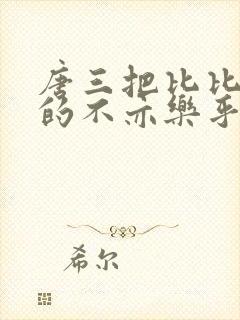 唐三把比比
的不亦樂乎
希尔